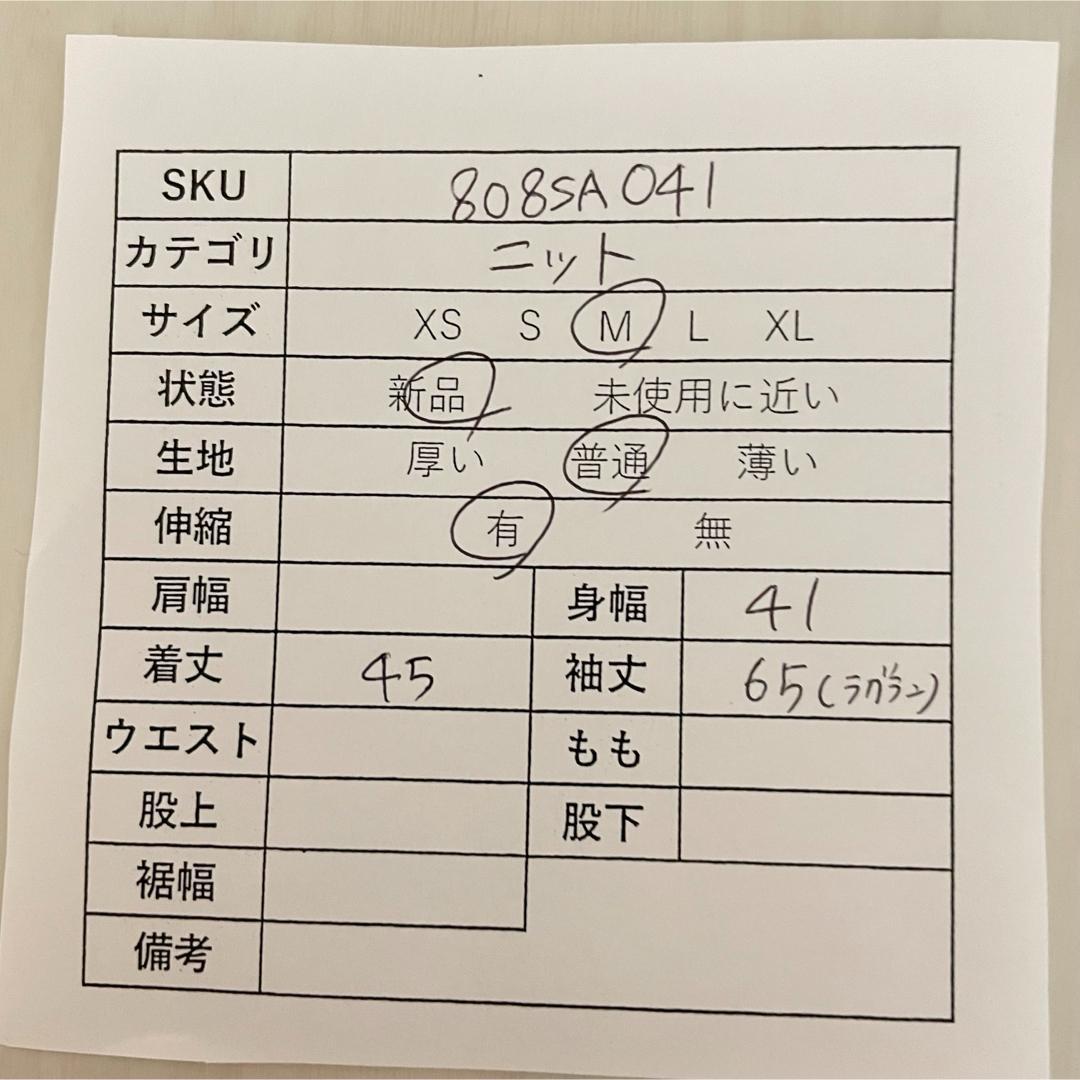 SKU 808SA041
カテゴリ ニット
サイズ XS S M L XL
状態 新品 未使用に近い
生地 厚い 普通 薄い
伸縮 有 無
肩幅 身幅 41
着丈 45 袖丈 65(ラグラン)
ウエスト もも
股上 股下
裾幅
備考